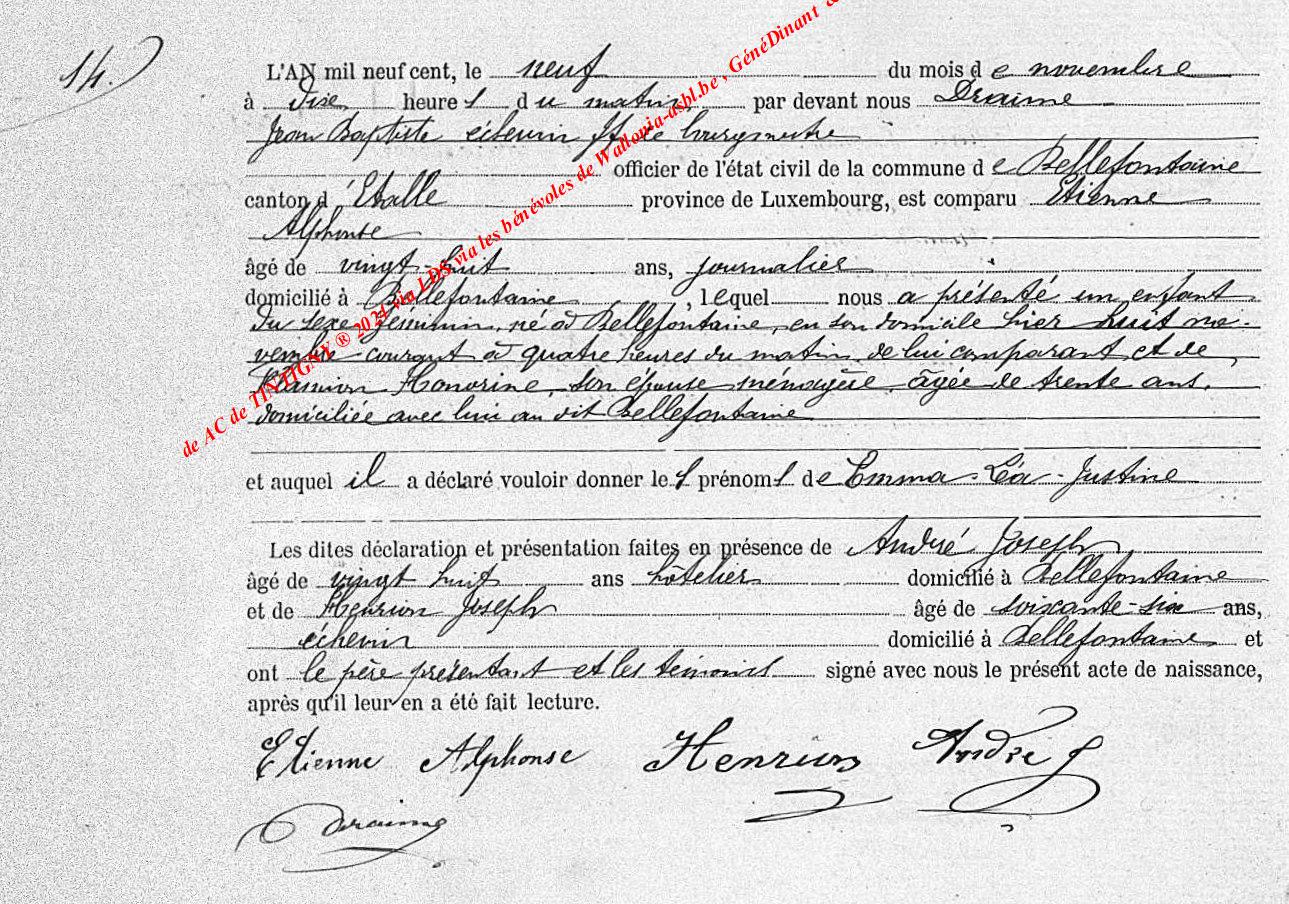 14.
L'AN mil neuf cent, le neuf du mois de novembre
à dix heures du matin, par devant nous Draime
Jean Baptiste échevin ff de bourgmestre
officier de l'état civil de la commune de Bellefontaine
canton d'Etalle province de Luxembourg, est comparu Etienne
Alphonse
âgé de vingt-huit ans, journalier
domicilié à Bellefontaine, lequel nous a présenté un enfant
du sexe féminin, né à Bellefontaine, en son domicile hier huit no-
vembre courant à quatre heures du matin, de lui comparant et de
Honorine, son épouse ménagère, âgée de trente ans,
domiciliée avec lui au dit Bellefontaine
et auquel il a déclaré vouloir donner les prénoms de Emma-Léa-Justine
Les dites déclaration et présentation faites en présence de André Joseph,
âgé de vingt huit ans hôtelier domicilié à Bellefontaine
et de Henrion Joseph âgé de soixante-six ans,
échevin domicilié à Bellefontaine et
ont le père présentant et les témoins signé avec nous le présent acte de naissance,
après qu'il leur en a été fait lecture.
Etienne Alphonse Henrion André J
Draime
de AC de TINTIGNY ® 2024 via LDS via les bénévoles de Wallonia-asbl.be, GénéDinant &